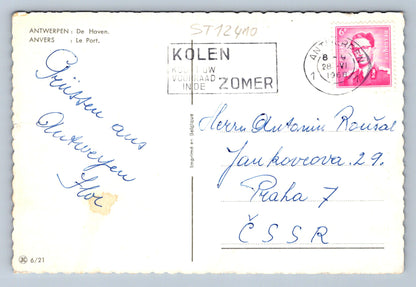 ANTWERPEN : De Haven.
ANVERS : Le Port.
ST12410
KOLEN
KOOP UW
VOORRAAD
IN DE ZOMER
ANTWERPEN
8 -
28 VI
1966
1 1
België-Belgique
Grüssen aus
Antwerpen
Imprimé en Belgique
Herrn Antonin Roušal
Jankovcova 29.
Praha 7
ČSSR
6/21